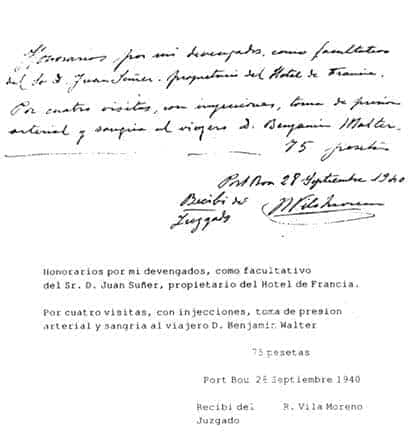 Honorarios por mi devengados, como facultativo
del Sr. D. Juan Suñer, propietario del Hotel de Francia.
Por cuatro visitas, con inyecciones, toma de presion
arterial y sangria al viajero D. Benjamin Walter.
75 pesetas
Port Bou 28 Septiembre 1940
Recibi del
Juzgado
Honorarios por mi devengados, como facultativo
del Sr. D. Juan Suñer, propietario del Hotel de Francia.
Por cuatro visitas, con injecciones, toma de presion
arterial y sangria al viajero D. Benjamin Walter
75 pesetas
Port Bou 28 Septiembre 1940
Recibi del R. Vila Moreno
Juzgado